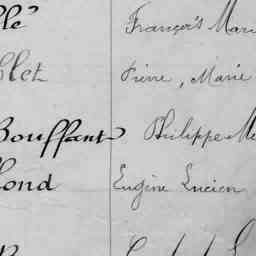 lé François Mari
blet Pierre, Marie
Bouffant Philippe Me
lond Eugène Lucien